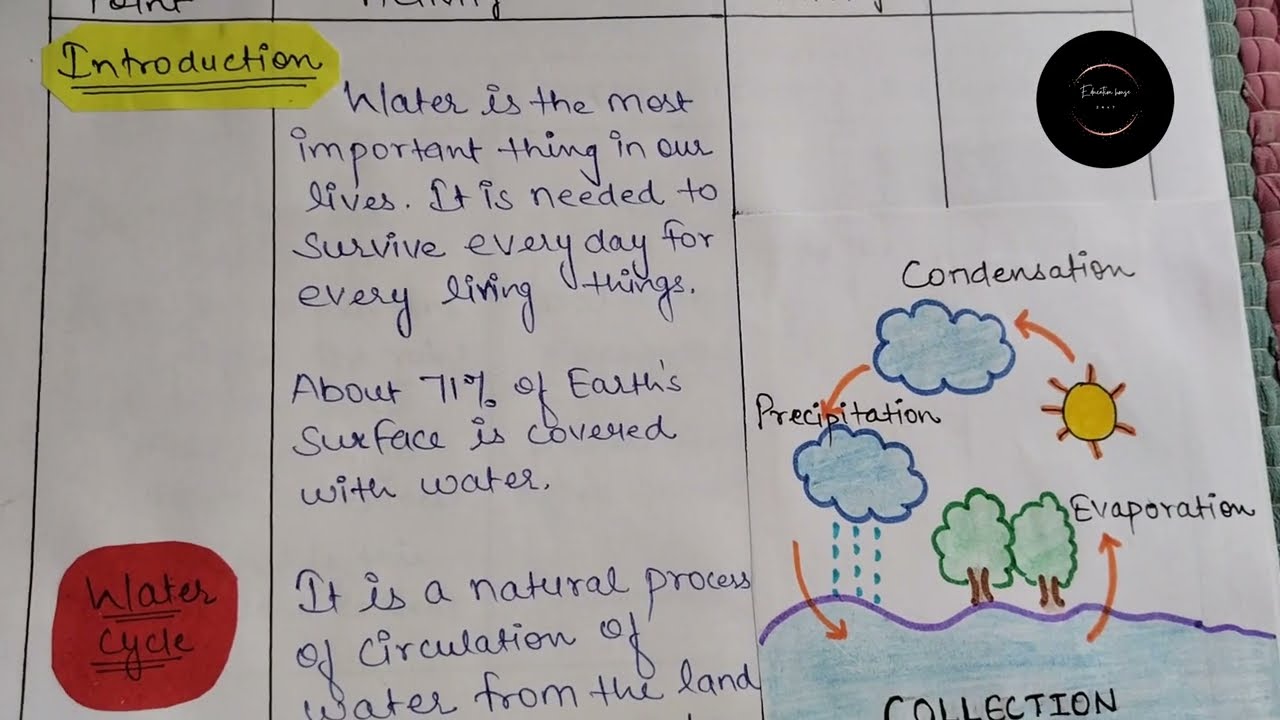 Point
Activity
Introduction
Water is the most
important thing in our
lives. It is needed to
survive every day for
every living things.
About 71% of Earth's
surface is covered
with water.
Water
Cycle
It is a natural process
of circulation of
water from the land
Condensation
Precipitation
Evaporation
COLLECTION
Education house